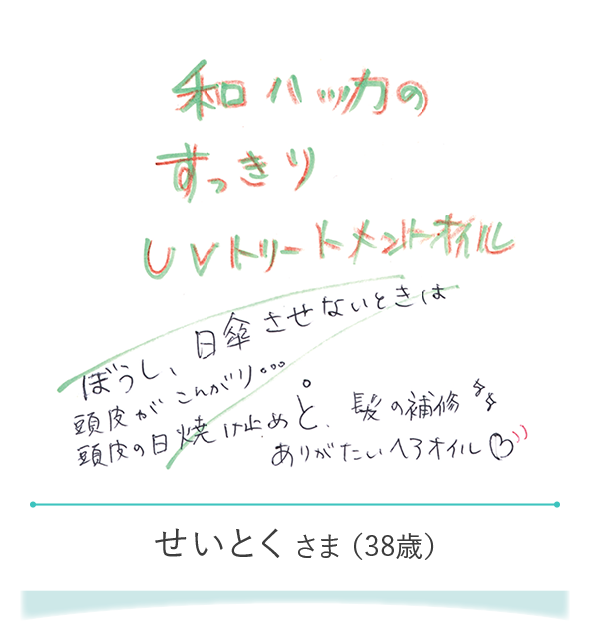 和ハッカの
すっきり
UVトリートメントオイル
ぼうし、日傘させないときは
頭皮がこんがり…
頭皮の日焼け止めと、髪の補修
ありがたいヘアオイル♡
せいとく さま（38歳）